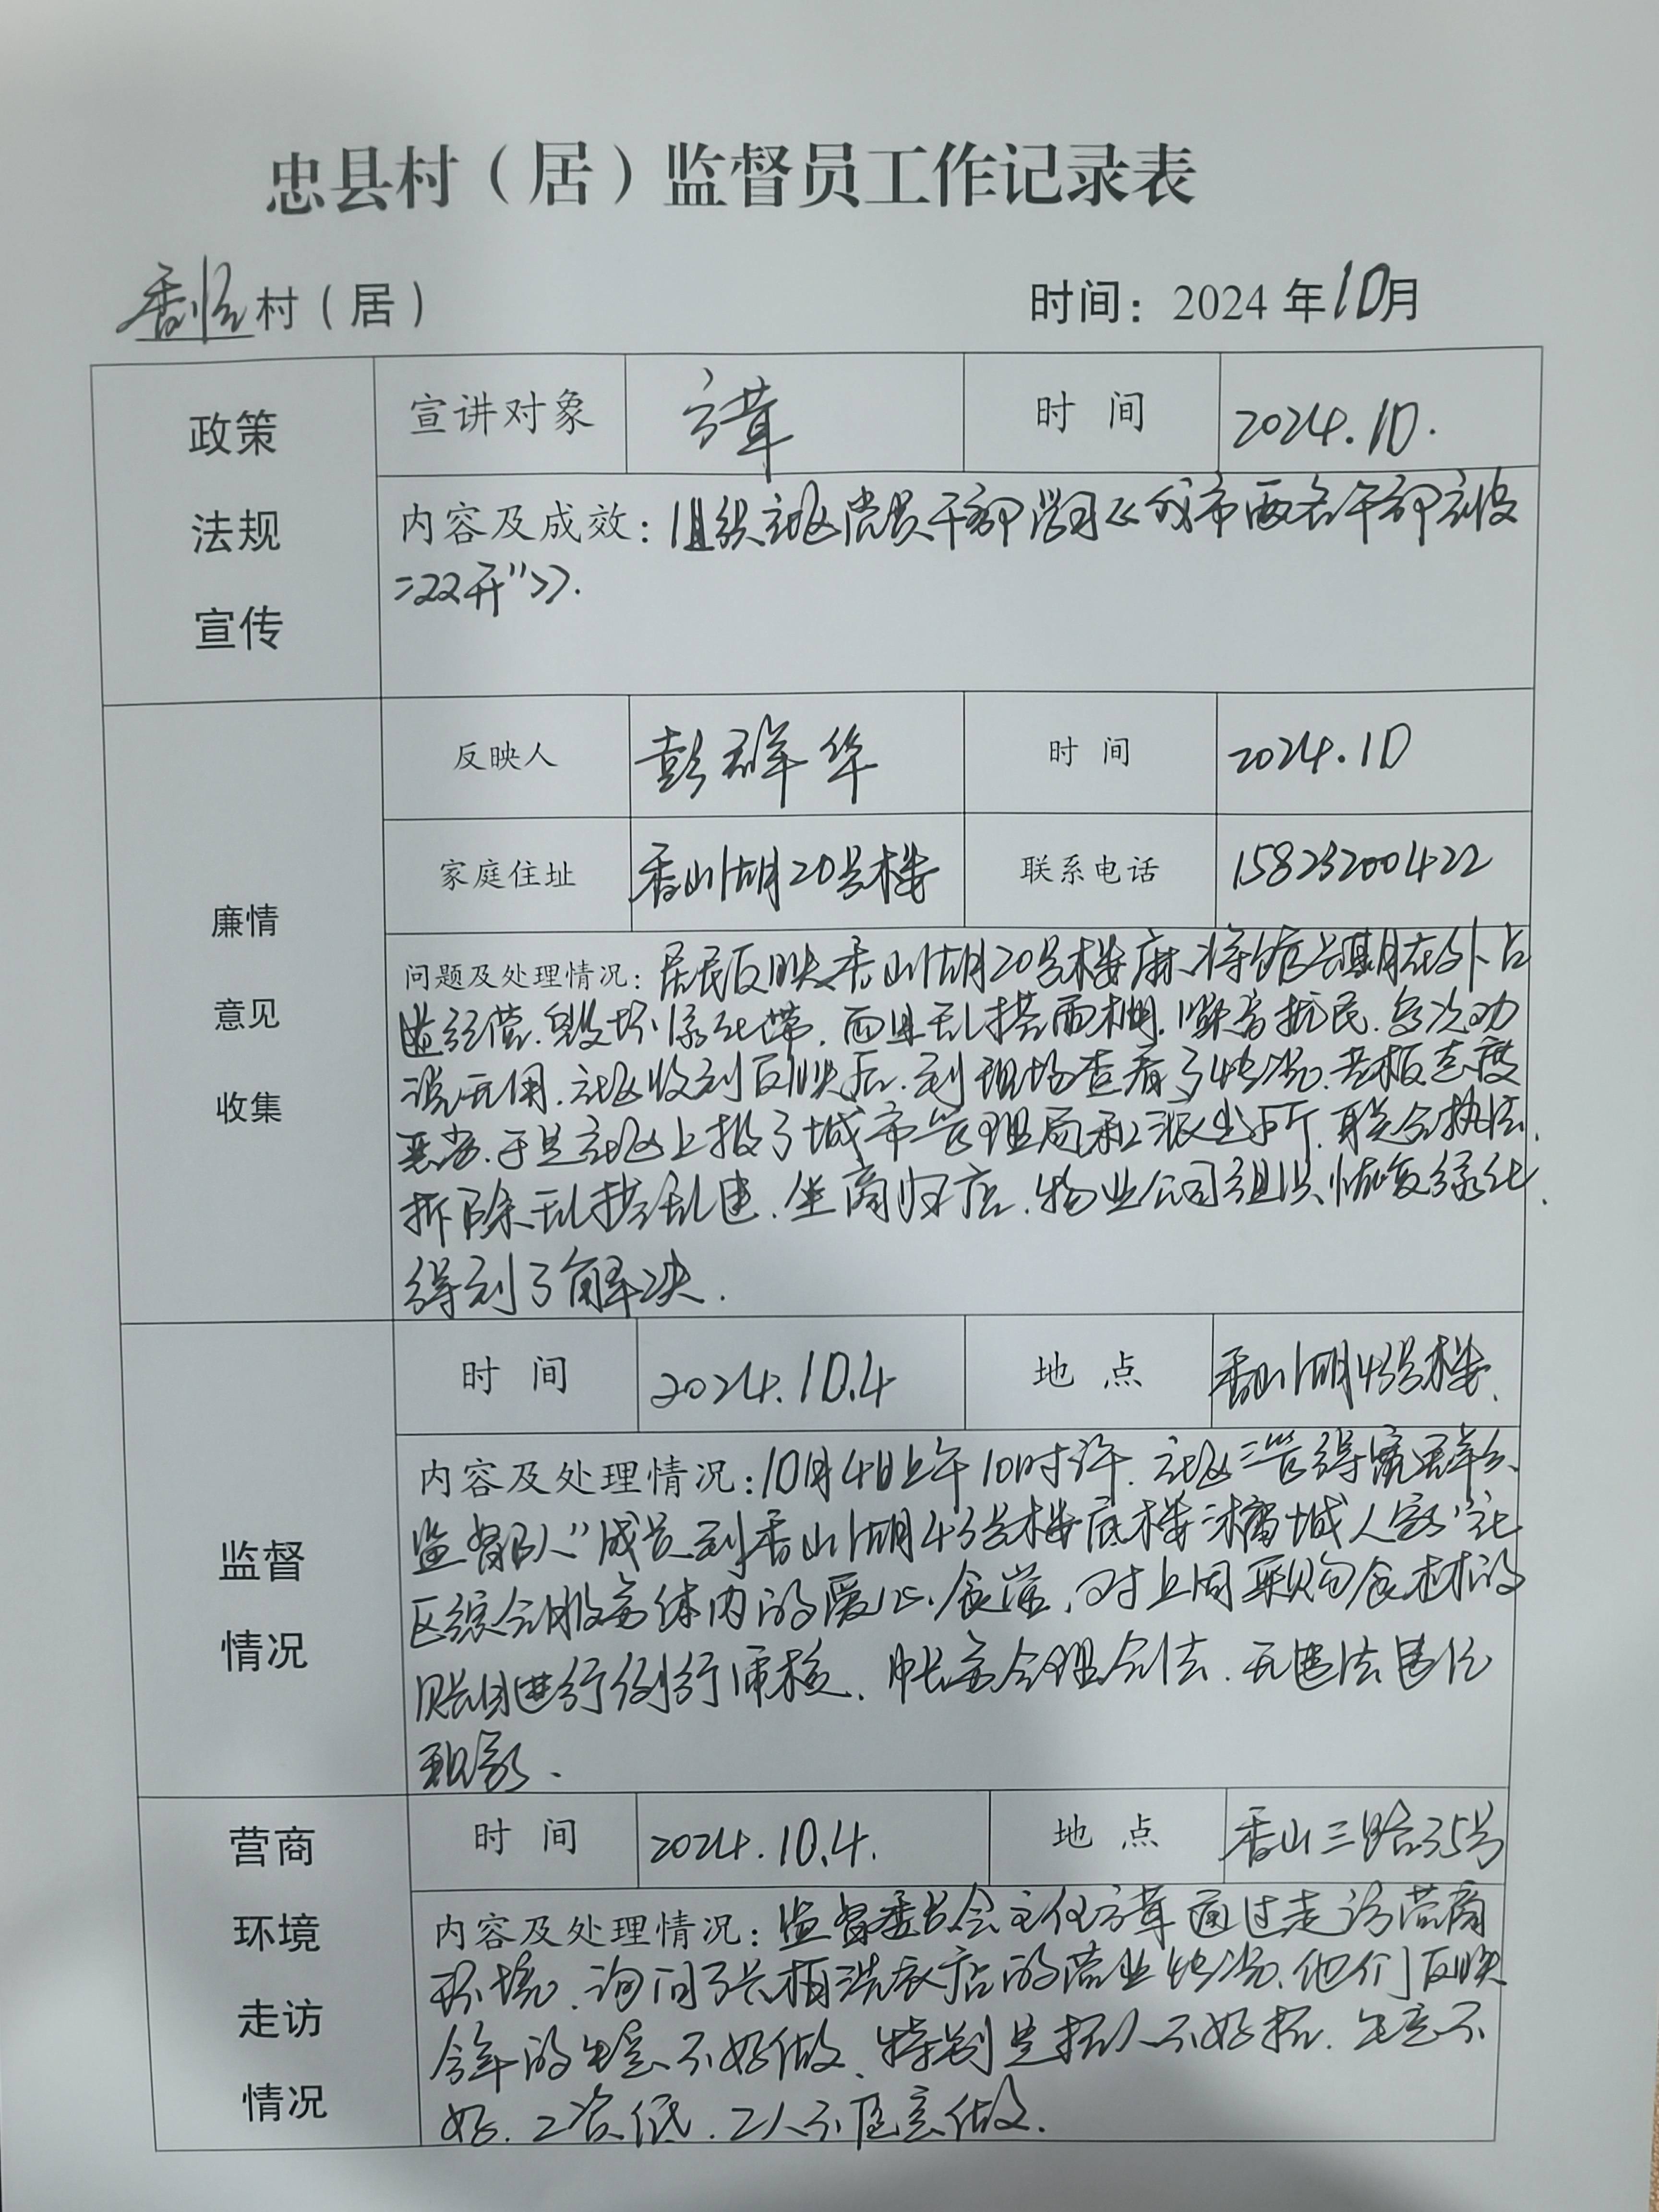 忠县村（居）监督员工作记录表
香怡村（居） 时间：2024年10月
政策法规宣传 宣讲对象 方茸 时间 2024.10.
内容及成效：组织社区党员干部学习《我市两名干部被
"双开"》.
廉情意见收集 反映人 彭群华 时间 2024.10
家庭住址 香山湖20号楼 联系电话 15823200422
问题及处理情况：居民反映香山湖20号楼麻将馆长期在外占
道经营.毁坏绿化带.而且乱搭雨棚.噪音扰民.多次劝
说无用.社区收到反映后.到现场查看了情况.老板态度
恶劣.于是社区上报了城市管理局和派出所.联合执法.
拆除乱搭乱建.坐商归店.物业公司组织恢复绿化.
得到了解决.
监督情况 时间 2024.10.4 地点 香山湖43号楼.
内容及处理情况：10月4日上午10时许.社区 群众
监督队"成员到香山湖43号楼底楼 城人家"社
区综合服务体内的爱心食堂.对上周采购食材的
账目进行例行审核.帐务合理合法.无违法违纪
现象.
营商环境走访情况 时间 2024.10.4. 地点 香山三路35号
内容及处理情况：监督委员会主任方茸通过走访营商
环境.询问了 洗衣店的营业情况.他们反映
今年的生意不好做.特别是招人不好招.生意不
好.工资低.工人不愿意做.